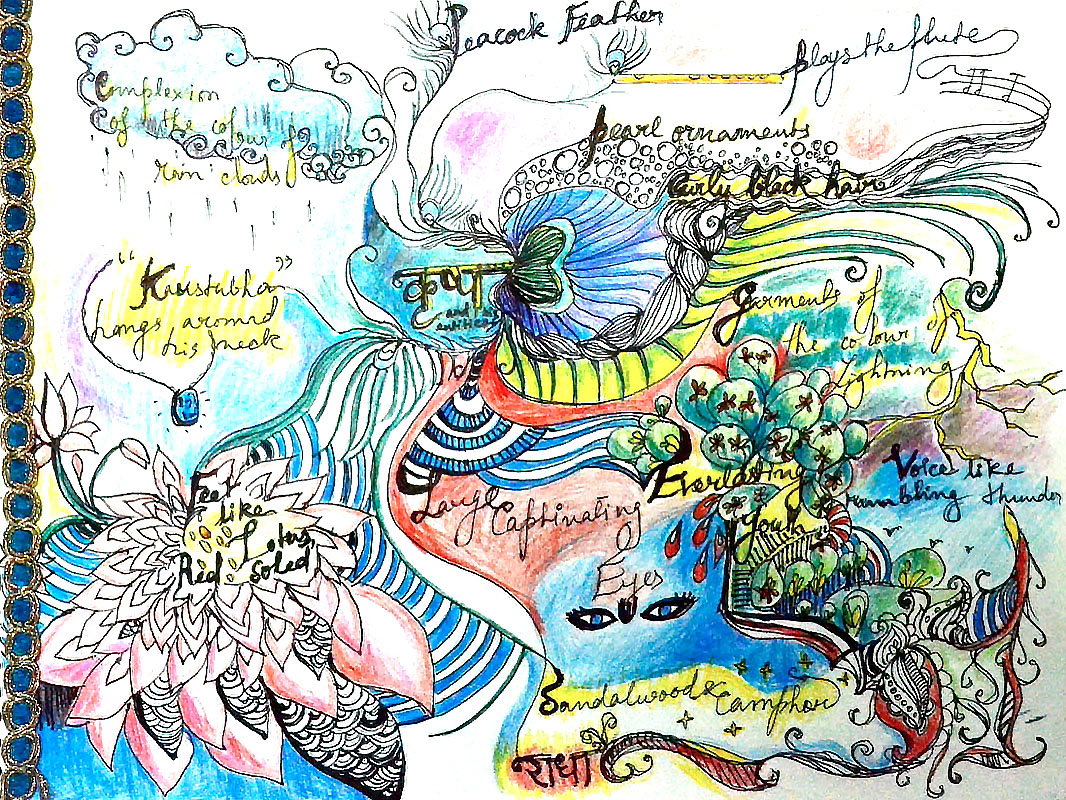 Peacock Feather
plays the flute
Complexion
of the colour of
rain clouds
pearl ornaments
Curly black hair
"Kaustubha"
hangs around
his neck
कृष्ण
and his
Garments of
the colour of
Lightning
Voice like
rumbling thunder
Everlasting
Youth
Large Captivating
Eyes
Feet
like
Lotus
Red soled
Sandalwood & Camphor
राधा